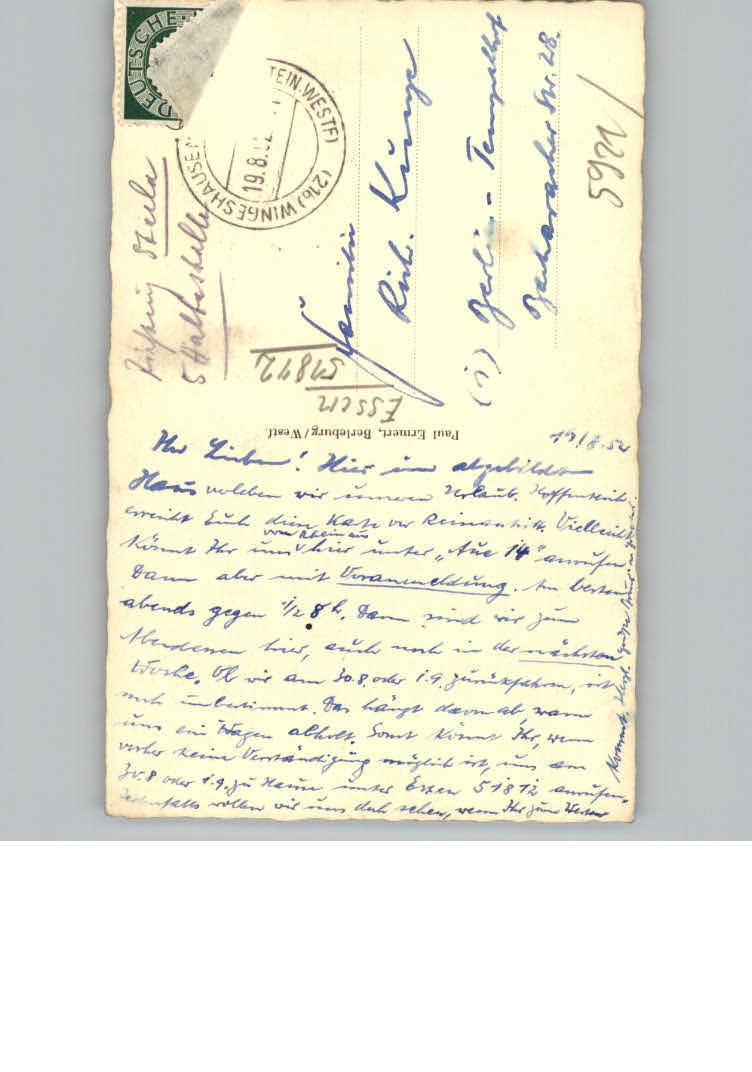 DEUTSCHE
(21b) WINGESHAUSEN
STEIN. WESTF)
19.8.52
Steele
S Haltestelle
Familie
Rich. Kunze
(1) Berlin - Tempelhof
Bacharacher Str. 28.
5921
Essen
51812
Paul Ermert, Berleburg/Westf.
19/8.52
Ihr Lieben! Hier im abgebildeten
Haus verleben wir unseren Urlaub. Hoffentlich
erreicht Euch diese Karte vor Reiseantritt. Vielleicht
könnt Ihr uns vom Rhein aus hier unter „Aue 14" anrufen.
Dann aber mit Voranmeldung. Am besten
abends gegen 1/2 8 h. Dann sind wir zum
Abendessen hier, auch noch in der nächsten
Woche. Ob wir am 30.8. oder 1.9. zurückfahren, ist
noch unbestimmt. Das hängt davon ab, wann
uns ein Wagen abholt. Sonst könnt Ihr, wenn
vorher keine Verständigung möglich ist, uns am
30.8 oder 1.9. zu Hause unter Essen 51812 anrufen.
Jedenfalls wollen wir uns doch sehen, wenn Ihr zum Westen
kommt. Herzl. Grüße